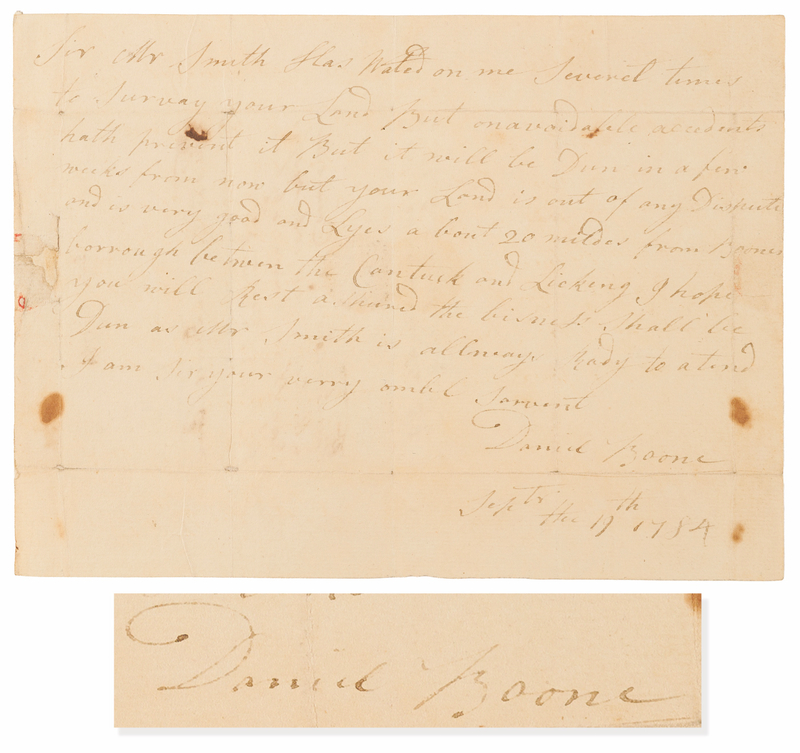 Sir Mr Smith Has Wated on me Severel times
to Survay your Land But onavoidable accedents
hath prevent it But it will be Dun in a few
weeks from now but your Land is out of any Dispute
and is very good and Lyes a bout 20 mildes from Boones
borrough betwen the Cantuck and Licking I hope
you will Rest ashured the bisness Shall be
Dun as Mr Smith is allways Rady to atend
I am Sir your verry ombel Sarvent
Daniel Boone
Septr the 19th 1784
Daniel Boone